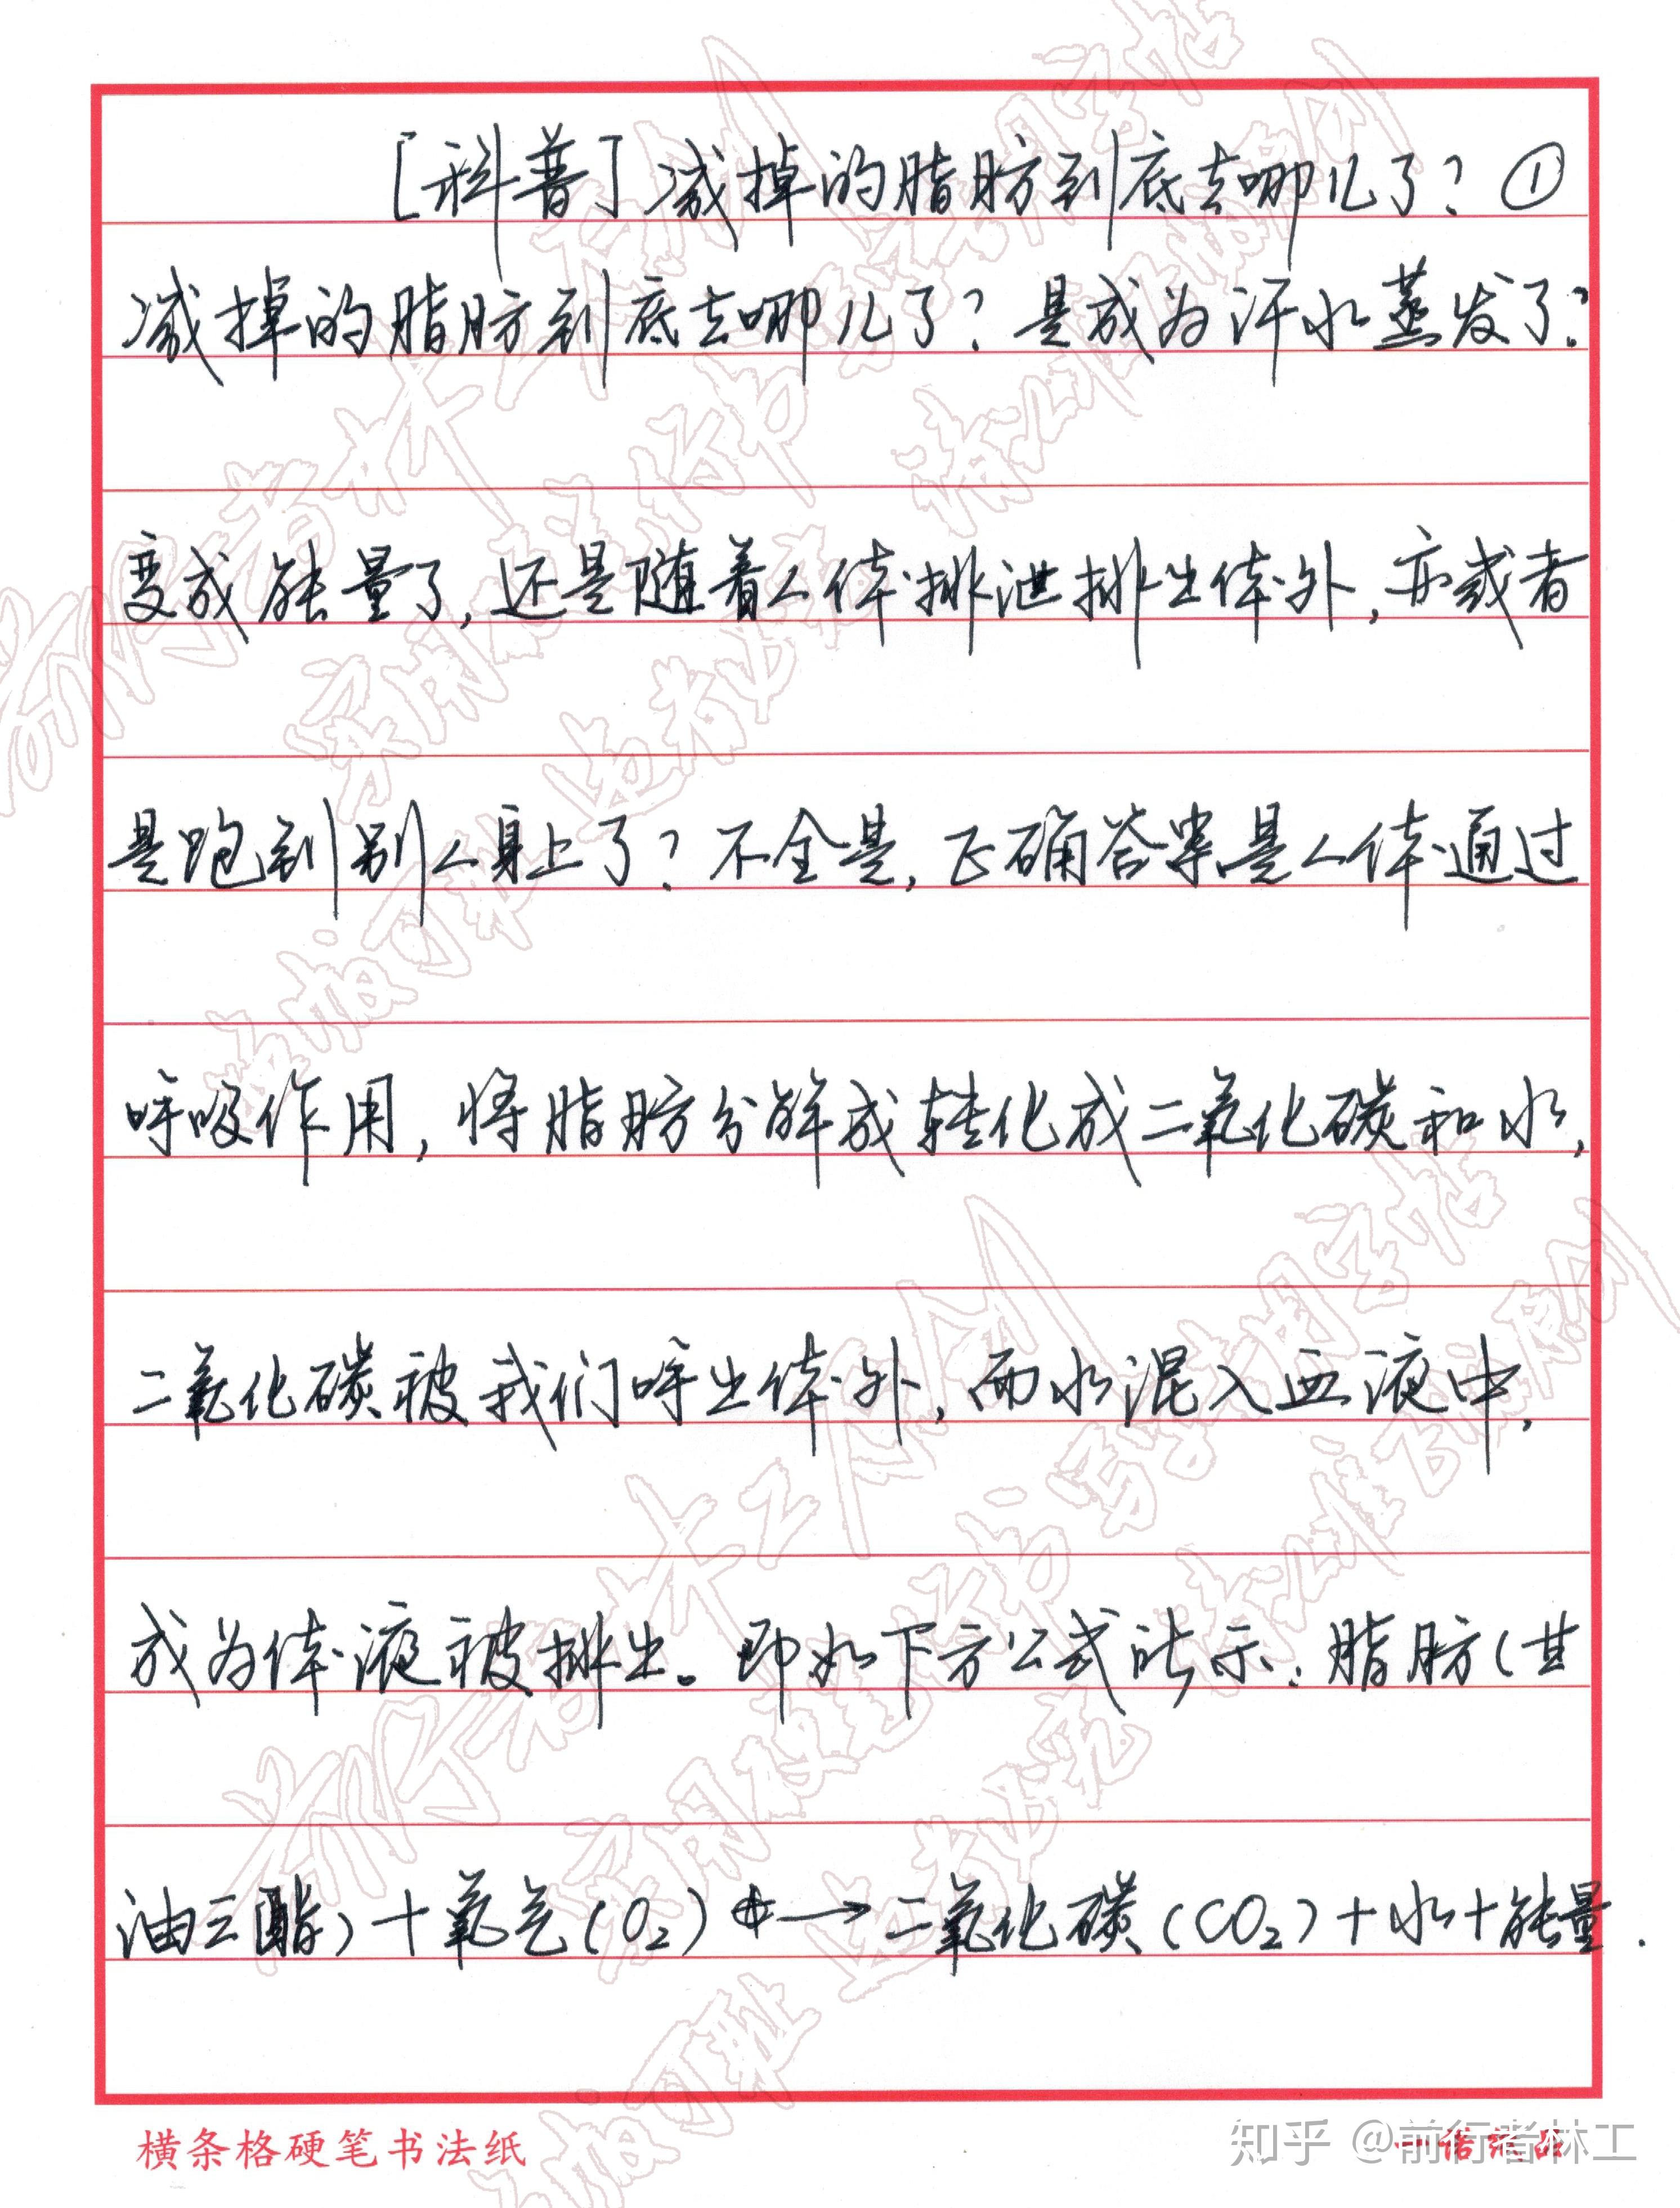 [科普]减掉的脂肪到底去哪儿了?①
减掉的脂肪到底去哪儿了?是成为汗水蒸发了?
变成能量了,还是随着人体排泄排出体外,亦或者
是跑到别人身上了?不全是,正确答案是人体通过
呼吸作用,将脂肪分解成转化成二氧化碳和水,
二氧化碳被我们呼出体外,而水混入血液中,
成为体液被排出。即如下方公式所示:脂肪(甘
油三酯)+氧气(O₂)→二氧化碳(CO₂)+水+能量.
横条格硬笔书法纸
知乎 @前行者林工